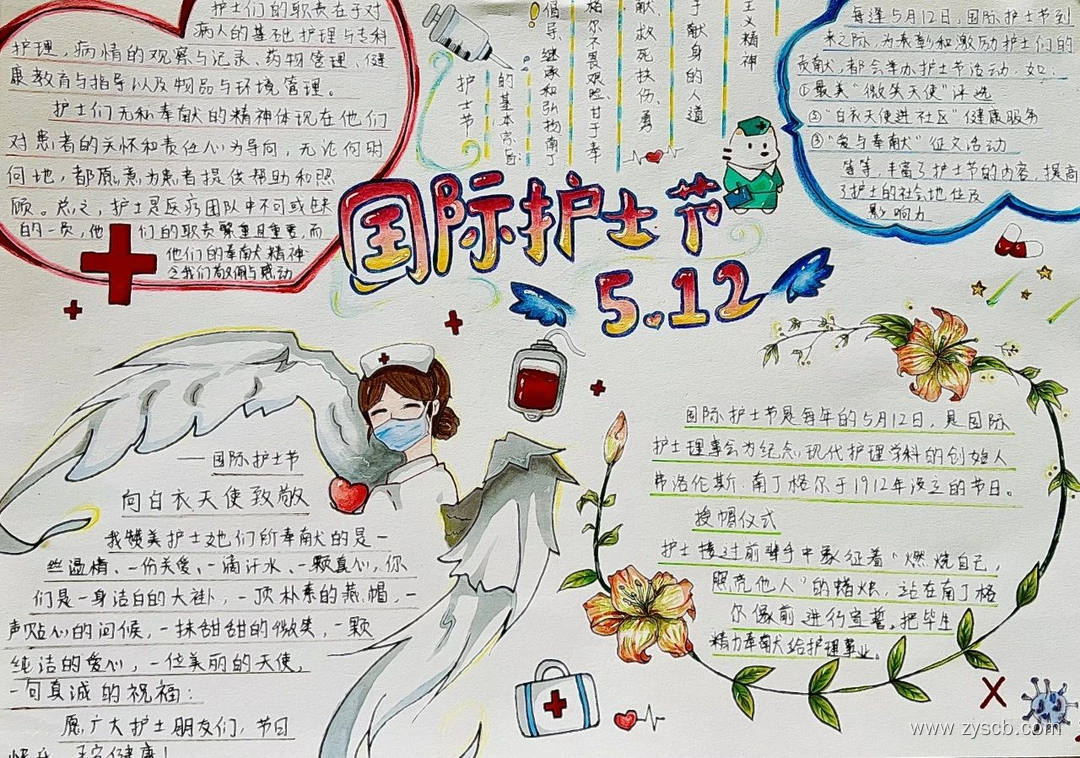 护士们的职责在于对
病人的基础护理与专科
护理，病情的观察与记录、药物管理、健
康教育与指导以及物品与环境管理。
护士们无私奉献的精神体现在他们
对患者的关怀和责任心为导向，无论何时
何地，都愿意为患者提供帮助和照
顾。总之，护士是医疗团队中不可或缺
的一员，他们的职责繁重且重要，而
他们的奉献精神
令我们敬佩与感动
护士节
的基本宗旨
倡导、继承和弘扬南丁
格尔不畏艰险、甘于奉
献、救死扶伤、勇
于献身的人道
主义精神
每逢5月12日，国际护士节到
来之际，为表彰和激励护士们的
贡献，都会举办护士节活动，如：
①最美“微笑天使”评选
②“白衣天使进社区”健康服务
③“爱与奉献”征文活动
等等，丰富了护士节的内容，提高
了护士的社会地位及
影响力
国际护士节
5.12
——国际护士节
向白衣天使致敬
我赞美护士她们所奉献的是一
丝温情、一份关爱、一滴汗水、一颗真心，你
们是一身洁白的大褂，一顶朴素的燕帽，一
声贴心的问候，一抹甜甜的微笑，一颗
纯洁的爱心，一位美丽的天使，
一句真诚的祝福：
愿广大护士朋友们，节日
快乐，平安健康！
国际护士节是每年的5月12日，是国际
护士理事会为纪念现代护理学科的创始人
弗洛伦斯·南丁格尔于1912年设立的节日。
授帽仪式
护士接过前辈手中象征着“燃烧自己，
照亮他人”的蜡烛，站在南丁格
尔像前进行宣誓，把毕生
精力奉献给护理事业。
www.zyscb.com